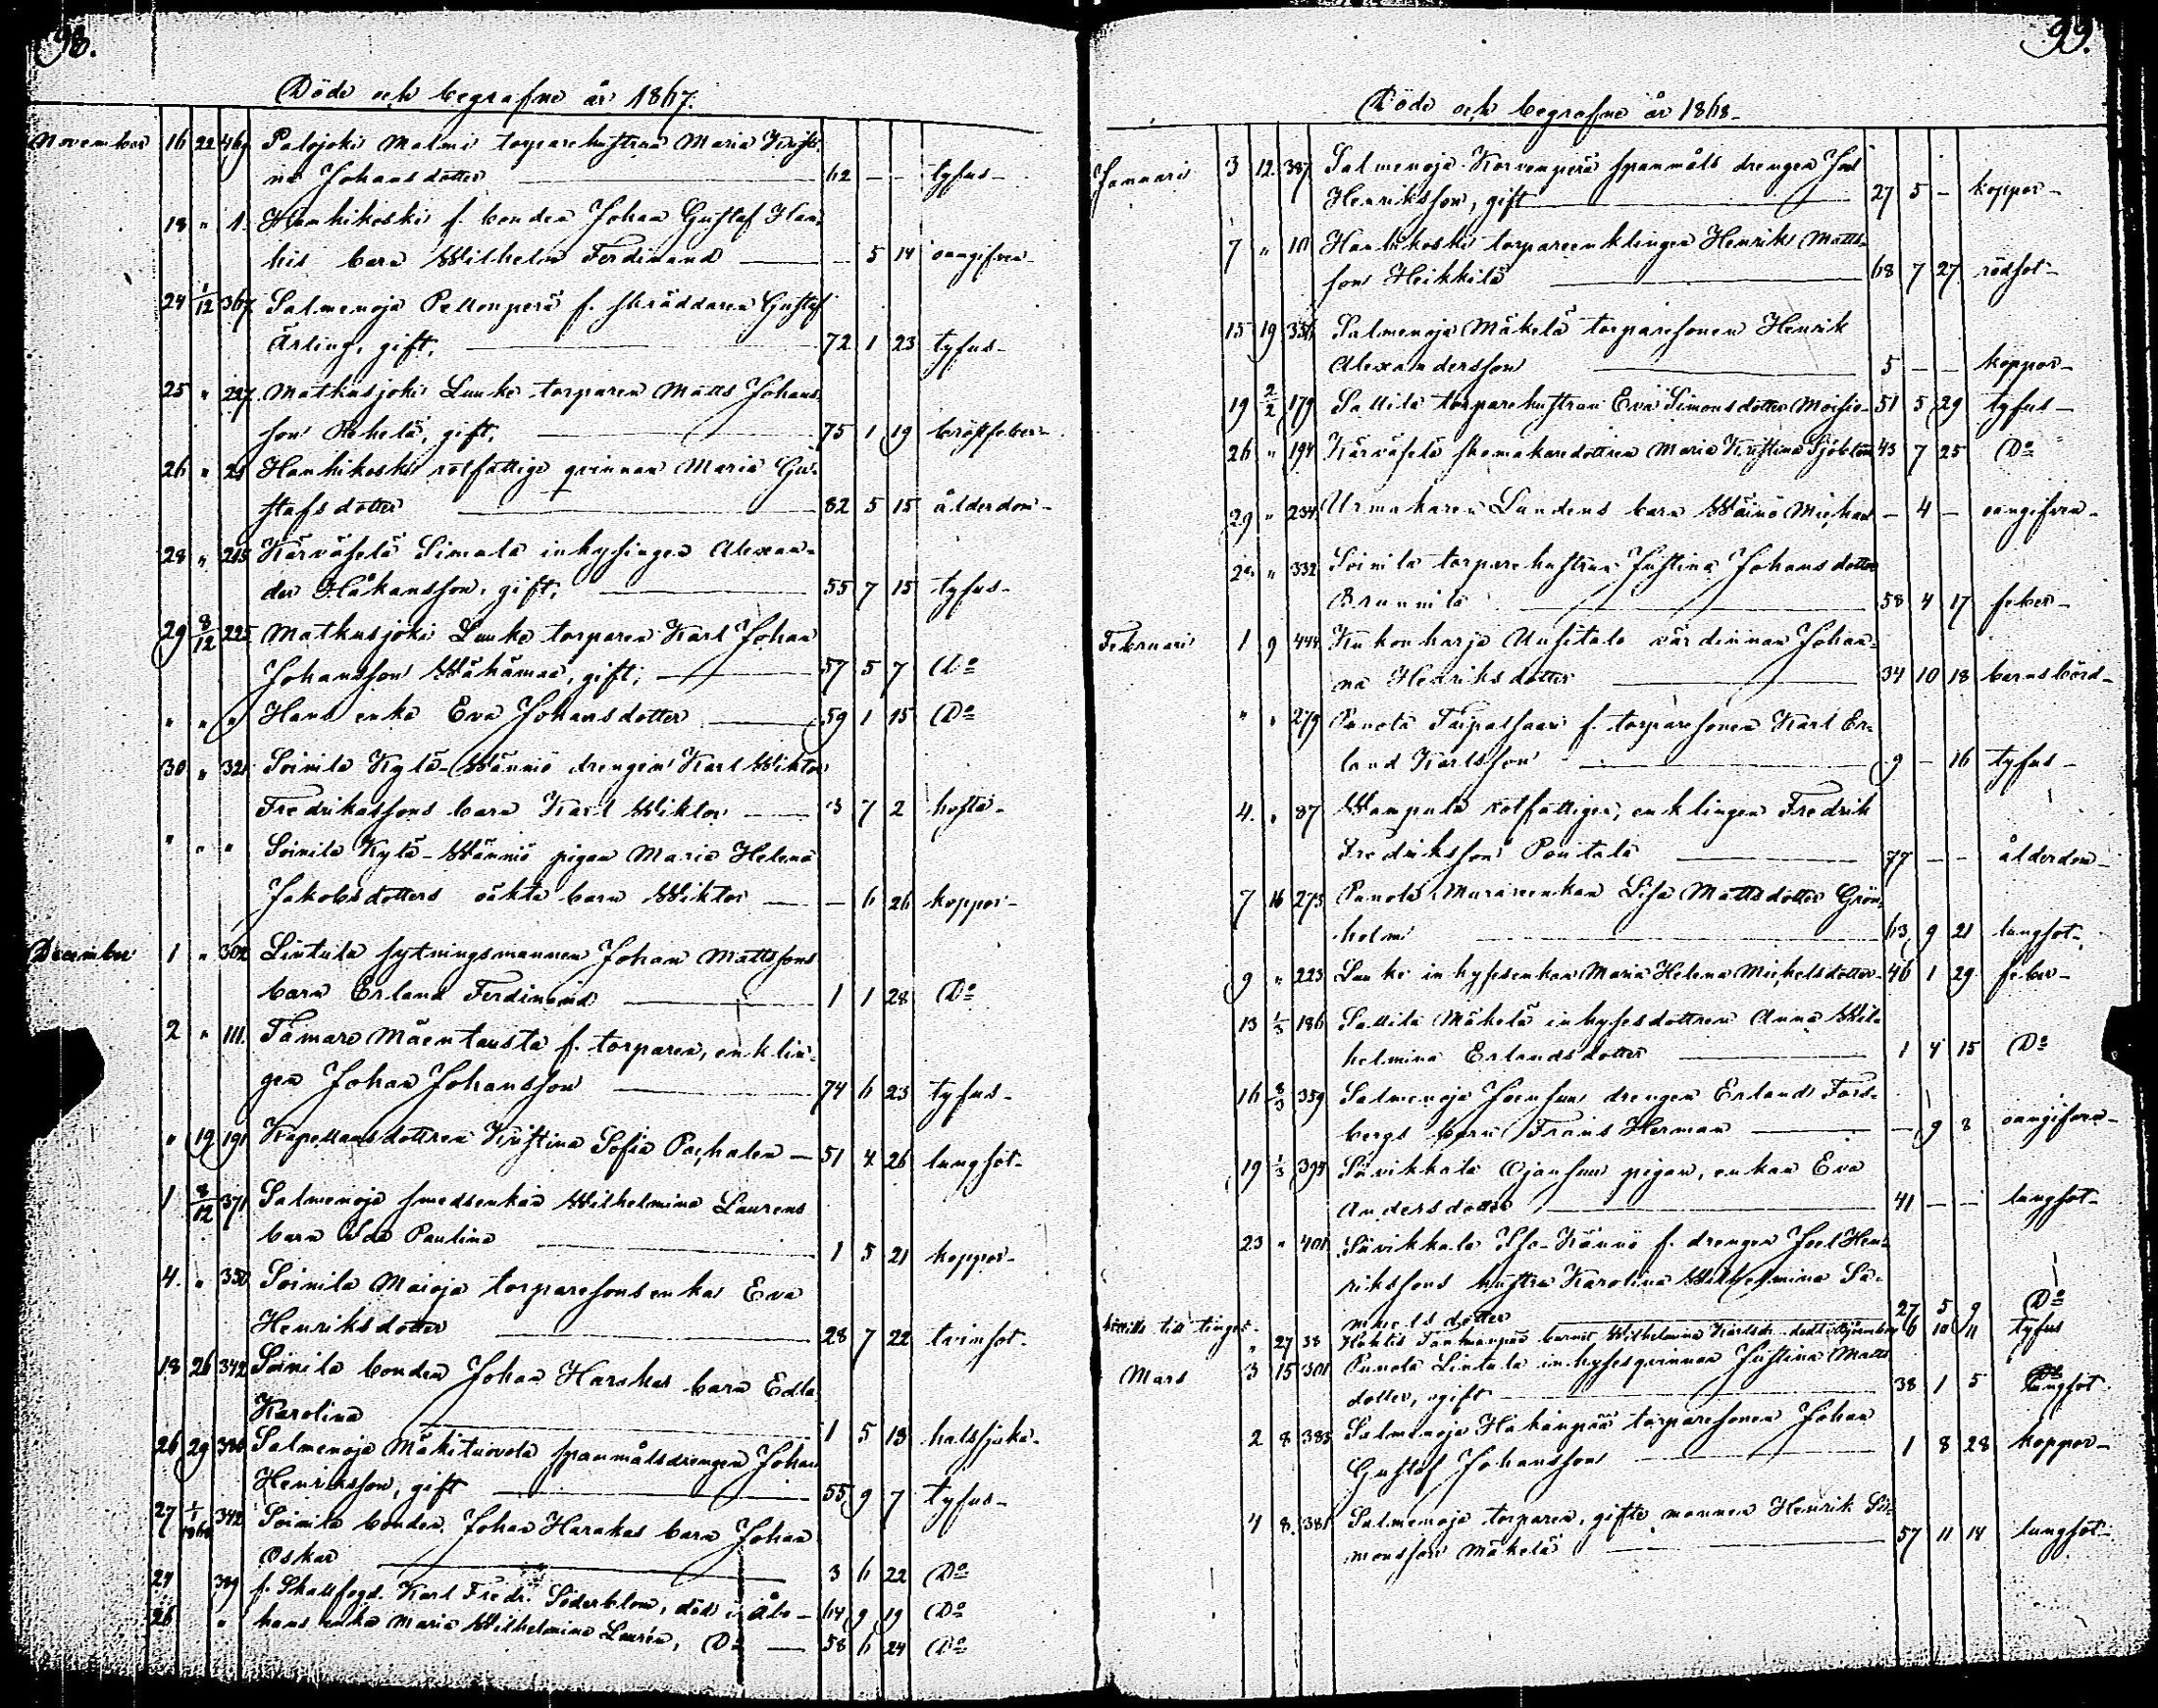 98.
Döde och begrafne år 1867.
November 16 22 469 Palojoki Malmi torparehustrun Maria Kristi-
na Johansdotter 62 — — tyfus
18 " 1. Hanhikoski f. bonden Johan Gustaf Han-
his barn Wilhelm Ferdinand — 5 14 oangifven
24 1/12 367 Salmenoja Pellonperä f. skräddaren Gustaf
Ärling, gift, 72 1 23 tyfus
25 " 227 Matkusjoki Luuke torparen Matts Johans-
son gift, 75 1 19 bröstfeber
26 " 21 Hanhikoski rotfattige qvinnan Maria Gu-
stafsdotter 82 5 15 ålderdom
28 " 215 Kärväselä Simala inhysingen Alexan-
der Håkansson, gift, 55 7 15 tyfus
29 8/12 225 Matkusjoki Luuke torparen Karl Johan
Johansson Wähämaa, gift, 57 5 7 Do
" " " Hans enka Eva Johansdotter 59 1 15 Do
30 " 321 Soinila Kylä-Wänniö drengen Karl Wiktor
Fredrikssons barn Karl Wiktor 3 7 2 hosta
" " " Soinila Kylä-Wänniö pigan Maria Helena
Jakobsdotters oäkta barn Wiktor — 6 26 koppor
December 1 " 302 Lintula sytningsmannen Johan Mattssons
barn Erland Ferdinand 1 1 28 Do
2 " 111. Tamare Mäentausta f. torparen, enklin-
gen Johan Johansson 74 6 23 tyfus
" 19 191 Kapellansdottren Kristina Sofia Pachalen — 51 4 26 lungsot
1 8/12 371 Salmenoja smedsenkan Wilhelmina Laurens
barn Ida Paulina 1 5 21 koppor
4. " 350 Soinila Maioja torparesonsenkan Eva
Henriksdotter 28 7 22 tvinsot
18 26 342 Soinila bonden Johan Harakas barn Edla
Karolina 1 5 13 halssjuka
26 29 380 Salmenoja Mäkituovola spanmålsdrengen Johan
Henriksson, gift 55 9 7 tyfus
27 1/1868 342 Soinila bonden Johan Harakas barn Johan
Oskar 3 6 22 Do
24 389 f. Skallfogd. Karl Fredr. Söderblom, död i Åbo — 64 9 19 Do
26 " hans enka Maria Wilhelmina Laurén, Do — 58 6 24 Do
99.
Döde och begrafne år 1868
Januari 3 12 387 Salmenoja Korvenperä spanmåls drengen Joel
Henriksson, gift 27 5 — koppor
7 " 10 Hanhikoski torpareenklingen Henrik Matts-
son Heikkilä 68 7 27 rödsot
15 19 351 Salmenoja Mäkelä torparesonen Henrik
Alexandersson 5 — — koppor
19 2/2 179 Sallila torparehustrun Eva Simonsdotter Moisio 51 5 29 tyfus
26 " 194 Kärväselä skomakaredottren Maria Kristina Sjöblom 43 7 25 Do
29 " 234 Urmakaren Lundens barn Wäinö Michael — 4 — oangifven
" 332 Soinila torparehustrun Justina Johansdotter
Brunnila 58 4 17 feber
Februari 1 9 444 Kukonharja Uusitalo värdinnan Johan-
na Henriksdotter 34 10 18 barnsbörd
" " 279 Punola Taipalsaari f. torparesonen Karl Er-
land Karlsson 9 — 16 tyfus
4. " 87 Wampula rotfattigen, enklingen Fredrik
Fredriksson Pautala 77 — — ålderdom
7 16 273 Punola Murareenkan Lisa Mattsdotter Grön-
holm 63 9 21 lungsot
9 " 223 Luuke inhysesenkan Maria Helena Michelsdotter 46 1 29 feber
13 1/3 186 Sallila Mäkelä inhysesdottren Anna Wil-
helmina Erlandsdotter 1 4 15 Do
16 8/3 359 Salmenoja Joensuu drengen Erland Fors-
bergs barn Frans Herman — 9 8 oangifven
19 1/3 395 Sävikkala Ojansuu pigan, enkan Eva
Andersdotter 41 — — lungsot
23 " 401 Sävikkala Iso-Kännö f. drengen Joel Hen-
rikssons hustru Karolina Wilhelmina Sa-
muelsdotter 27 5 9 Do
till tinget " 27 38 barnet Wilhelmina Karlsdr. 6 10 11 tyfus
Mars 3 15 301 Punola Lintula inhysesqvinnan Justina Matts
dotter, ogift 38 1 5 lungsot
2 8 383 Salmenoja Hakaanpää torparesonen Johan
Gustaf Johansson 1 8 28 koppor
4 8. 381 Salmenoja torparen, gifte mannen Henrik Si-
monsson Mäkelä 57 11 14 lungsot